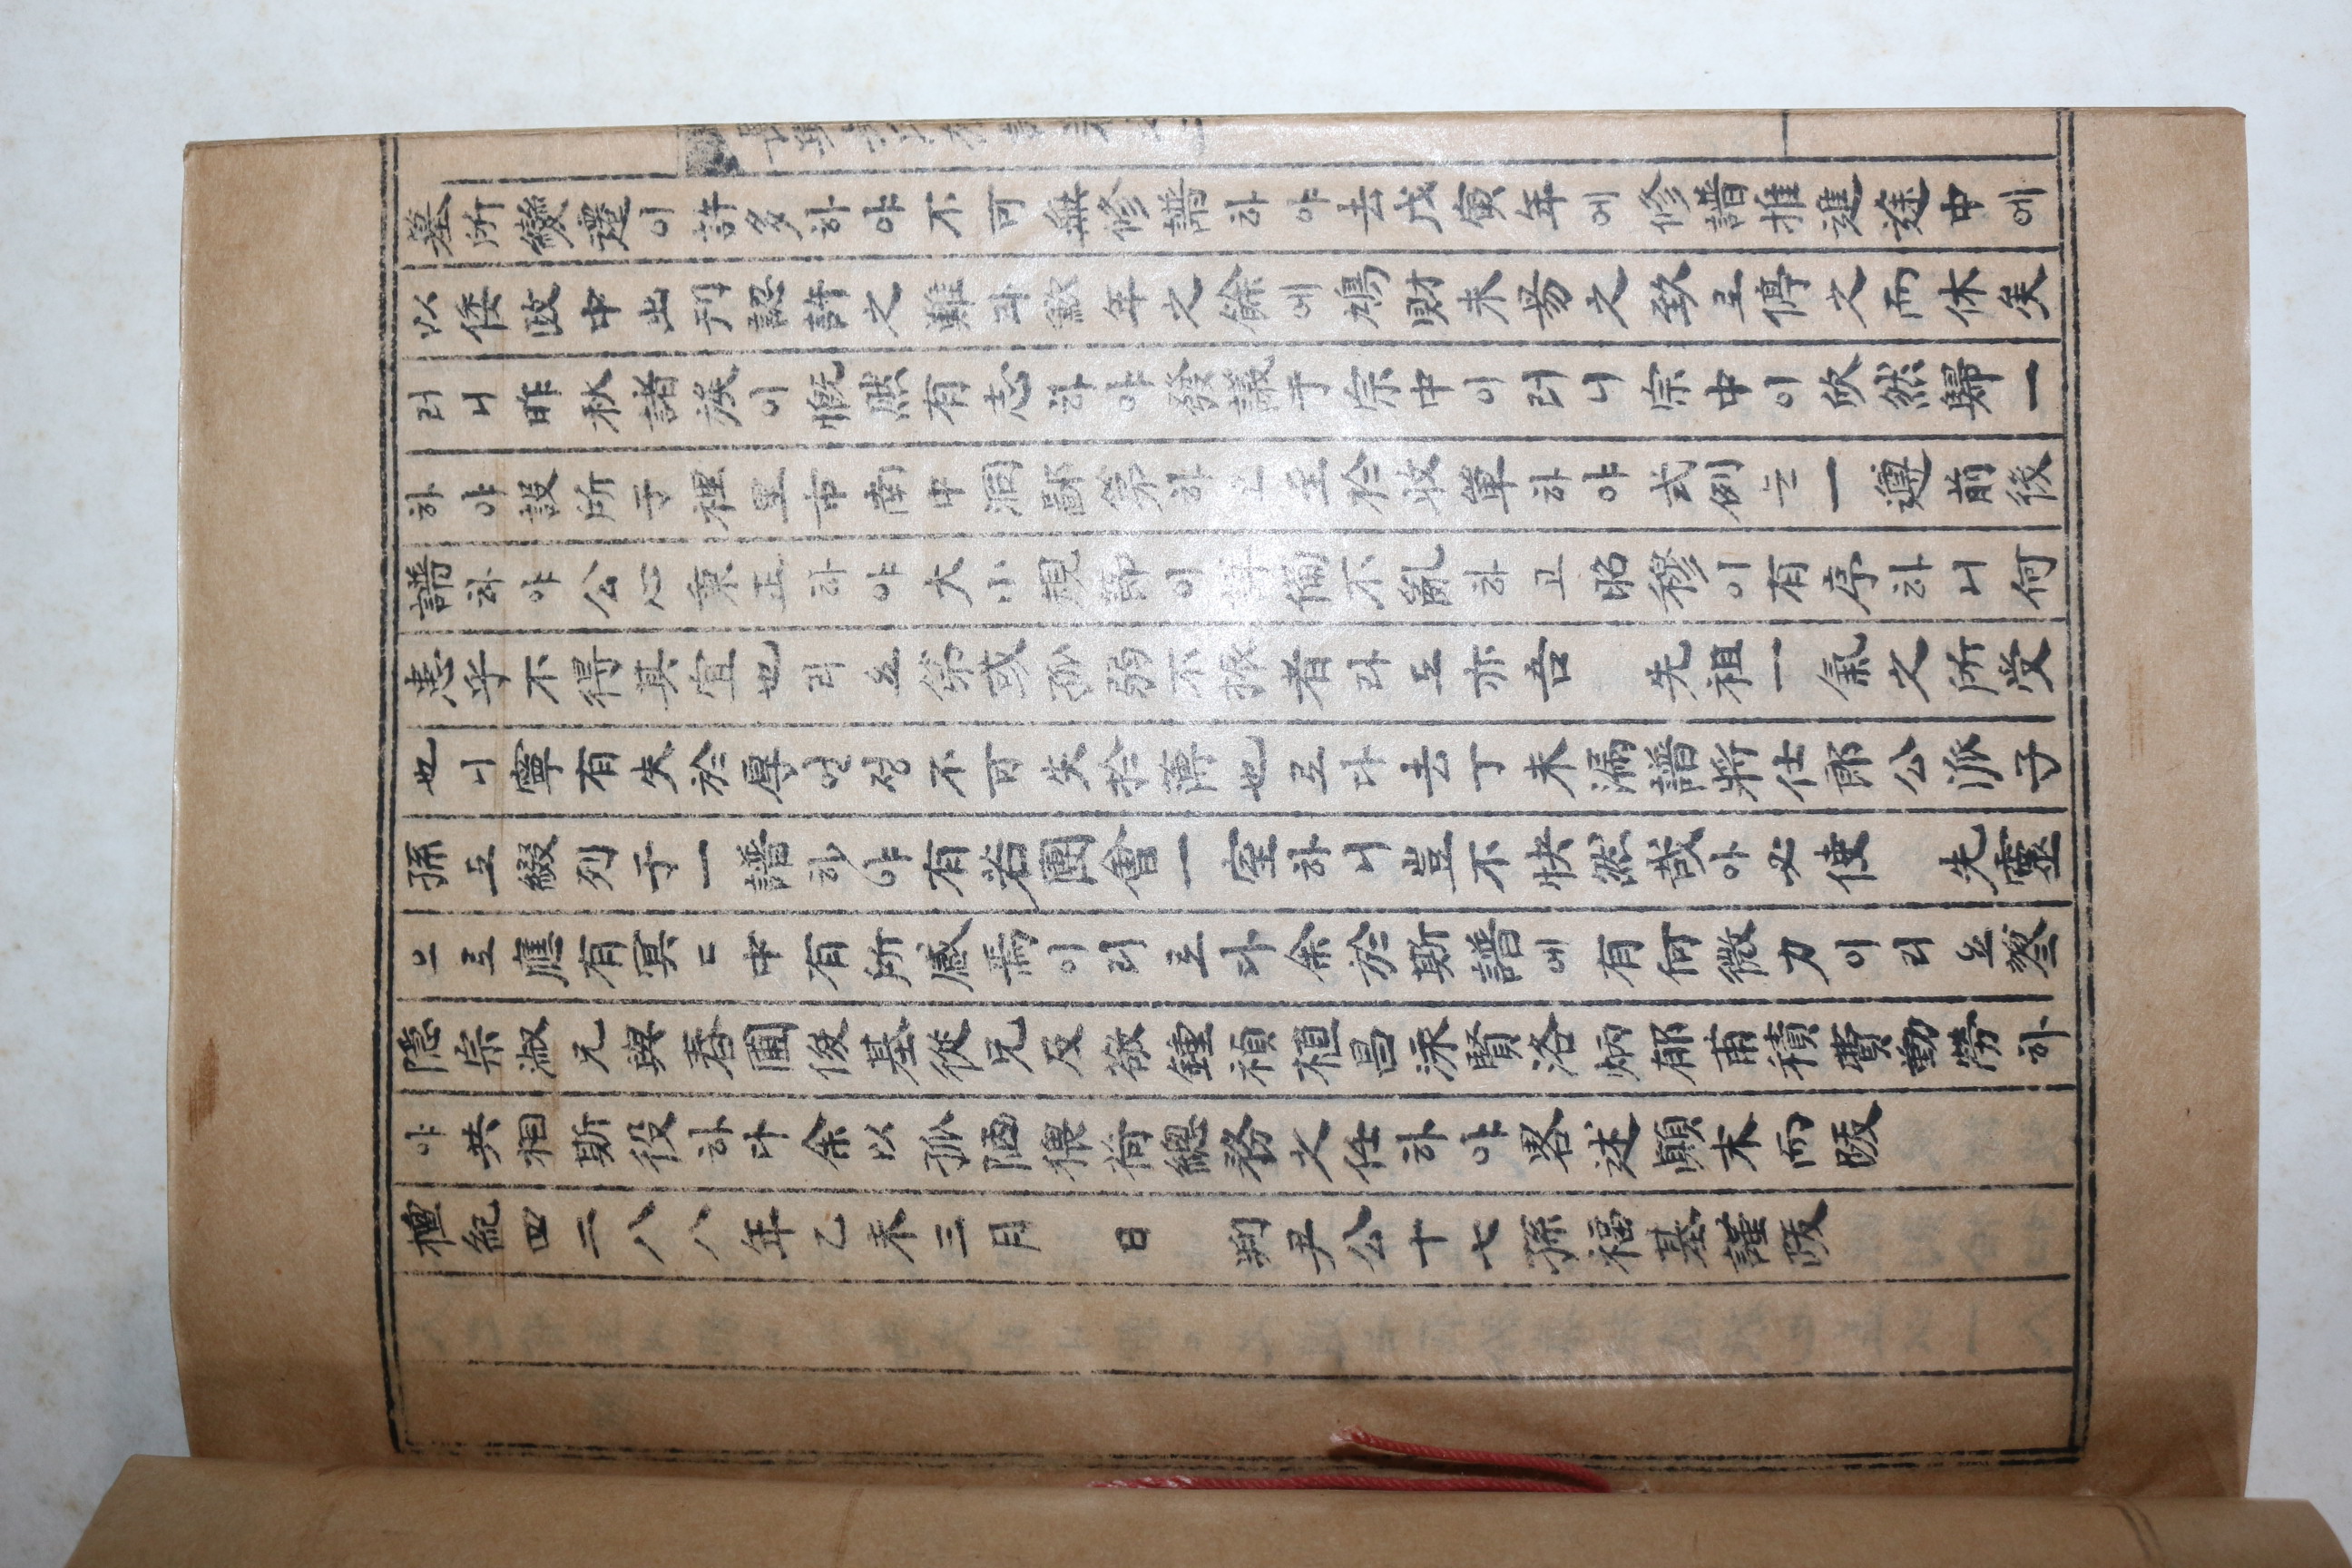 墓所變遷이許多하야不可無修譜하야去戊寅年에修譜推進途中에
以倭政中出刊認許之難과歉年之餘에鳩財未易之致로停之而休矣
러니昨秋諸族이慨然有志하야發議于宗中이러니宗中이欣然歸一
하야設所于裡里市南中洞 하고至於收單하야式例는一遵前後
譜하야公心秉正하야大小規節이 備不亂하고昭穆이有序하니何
患乎不得其宜也리요第或孤弱不振者라도亦吾 先祖一氣之所受
也니寧有失於厚연정不可失於薄也로다去丁未漏譜將仕郎公派子
孫도綴列于一譜하야有若團會一室하니豈不快然哉아必使 先靈
으로應有冥〻中有所感焉이리로다余於斯譜에有何微力이리요
隱宗淑兄與春圃俊基從兄及敬鍾禎植昌洙賢洛炳郁甫積費勤勞하
야共相斯役하다余以孤陋猥 總務之任하야畧述顚末而跋
檀紀四二八八年乙未三月 日 判尹公十七孫福基謹跋